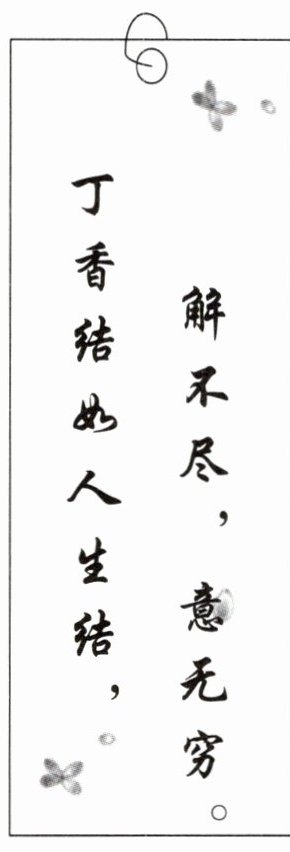 丁香结如人生结，
解不尽，意无穷。